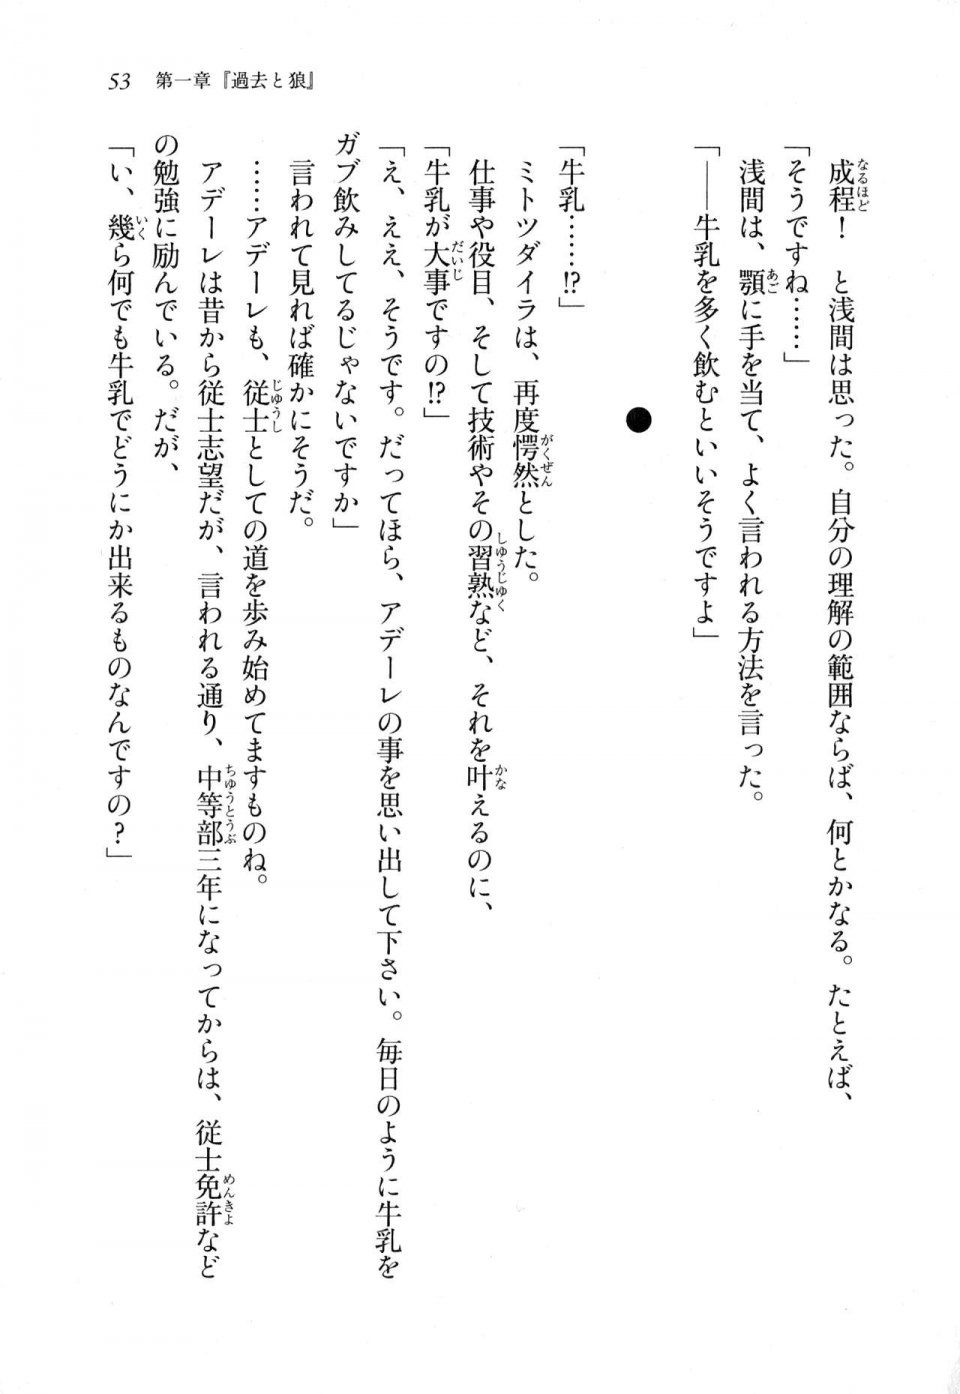 53 第一章『過去と狼』
成程！　と浅間は思った。自分の理解の範囲ならば、何とかなる。たとえば、
「そうですね……」
浅間は、顎に手を当て、よく言われる方法を言った。
「――牛乳を多く飲むといいそうですよ」
●
「牛乳……!?」
ミトツダイラは、再度愕然とした。
仕事や役目、そして技術やその習熟など、それを叶えるのに、
「牛乳が大事ですの!?」
「え、ええ、そうです。だってほら、アデーレの事を思い出して下さい。毎日のように牛乳を
ガブ飲みしてるじゃないですか」
言われて見れば確かにそうだ。
……アデーレも、従士としての道を歩み始めてますものね。
アデーレは昔から従士志望だが、言われる通り、中等部三年になってからは、従士免許など
の勉強に励んでいる。だが、
「い、幾ら何でも牛乳でどうにか出来るものなんですの？」